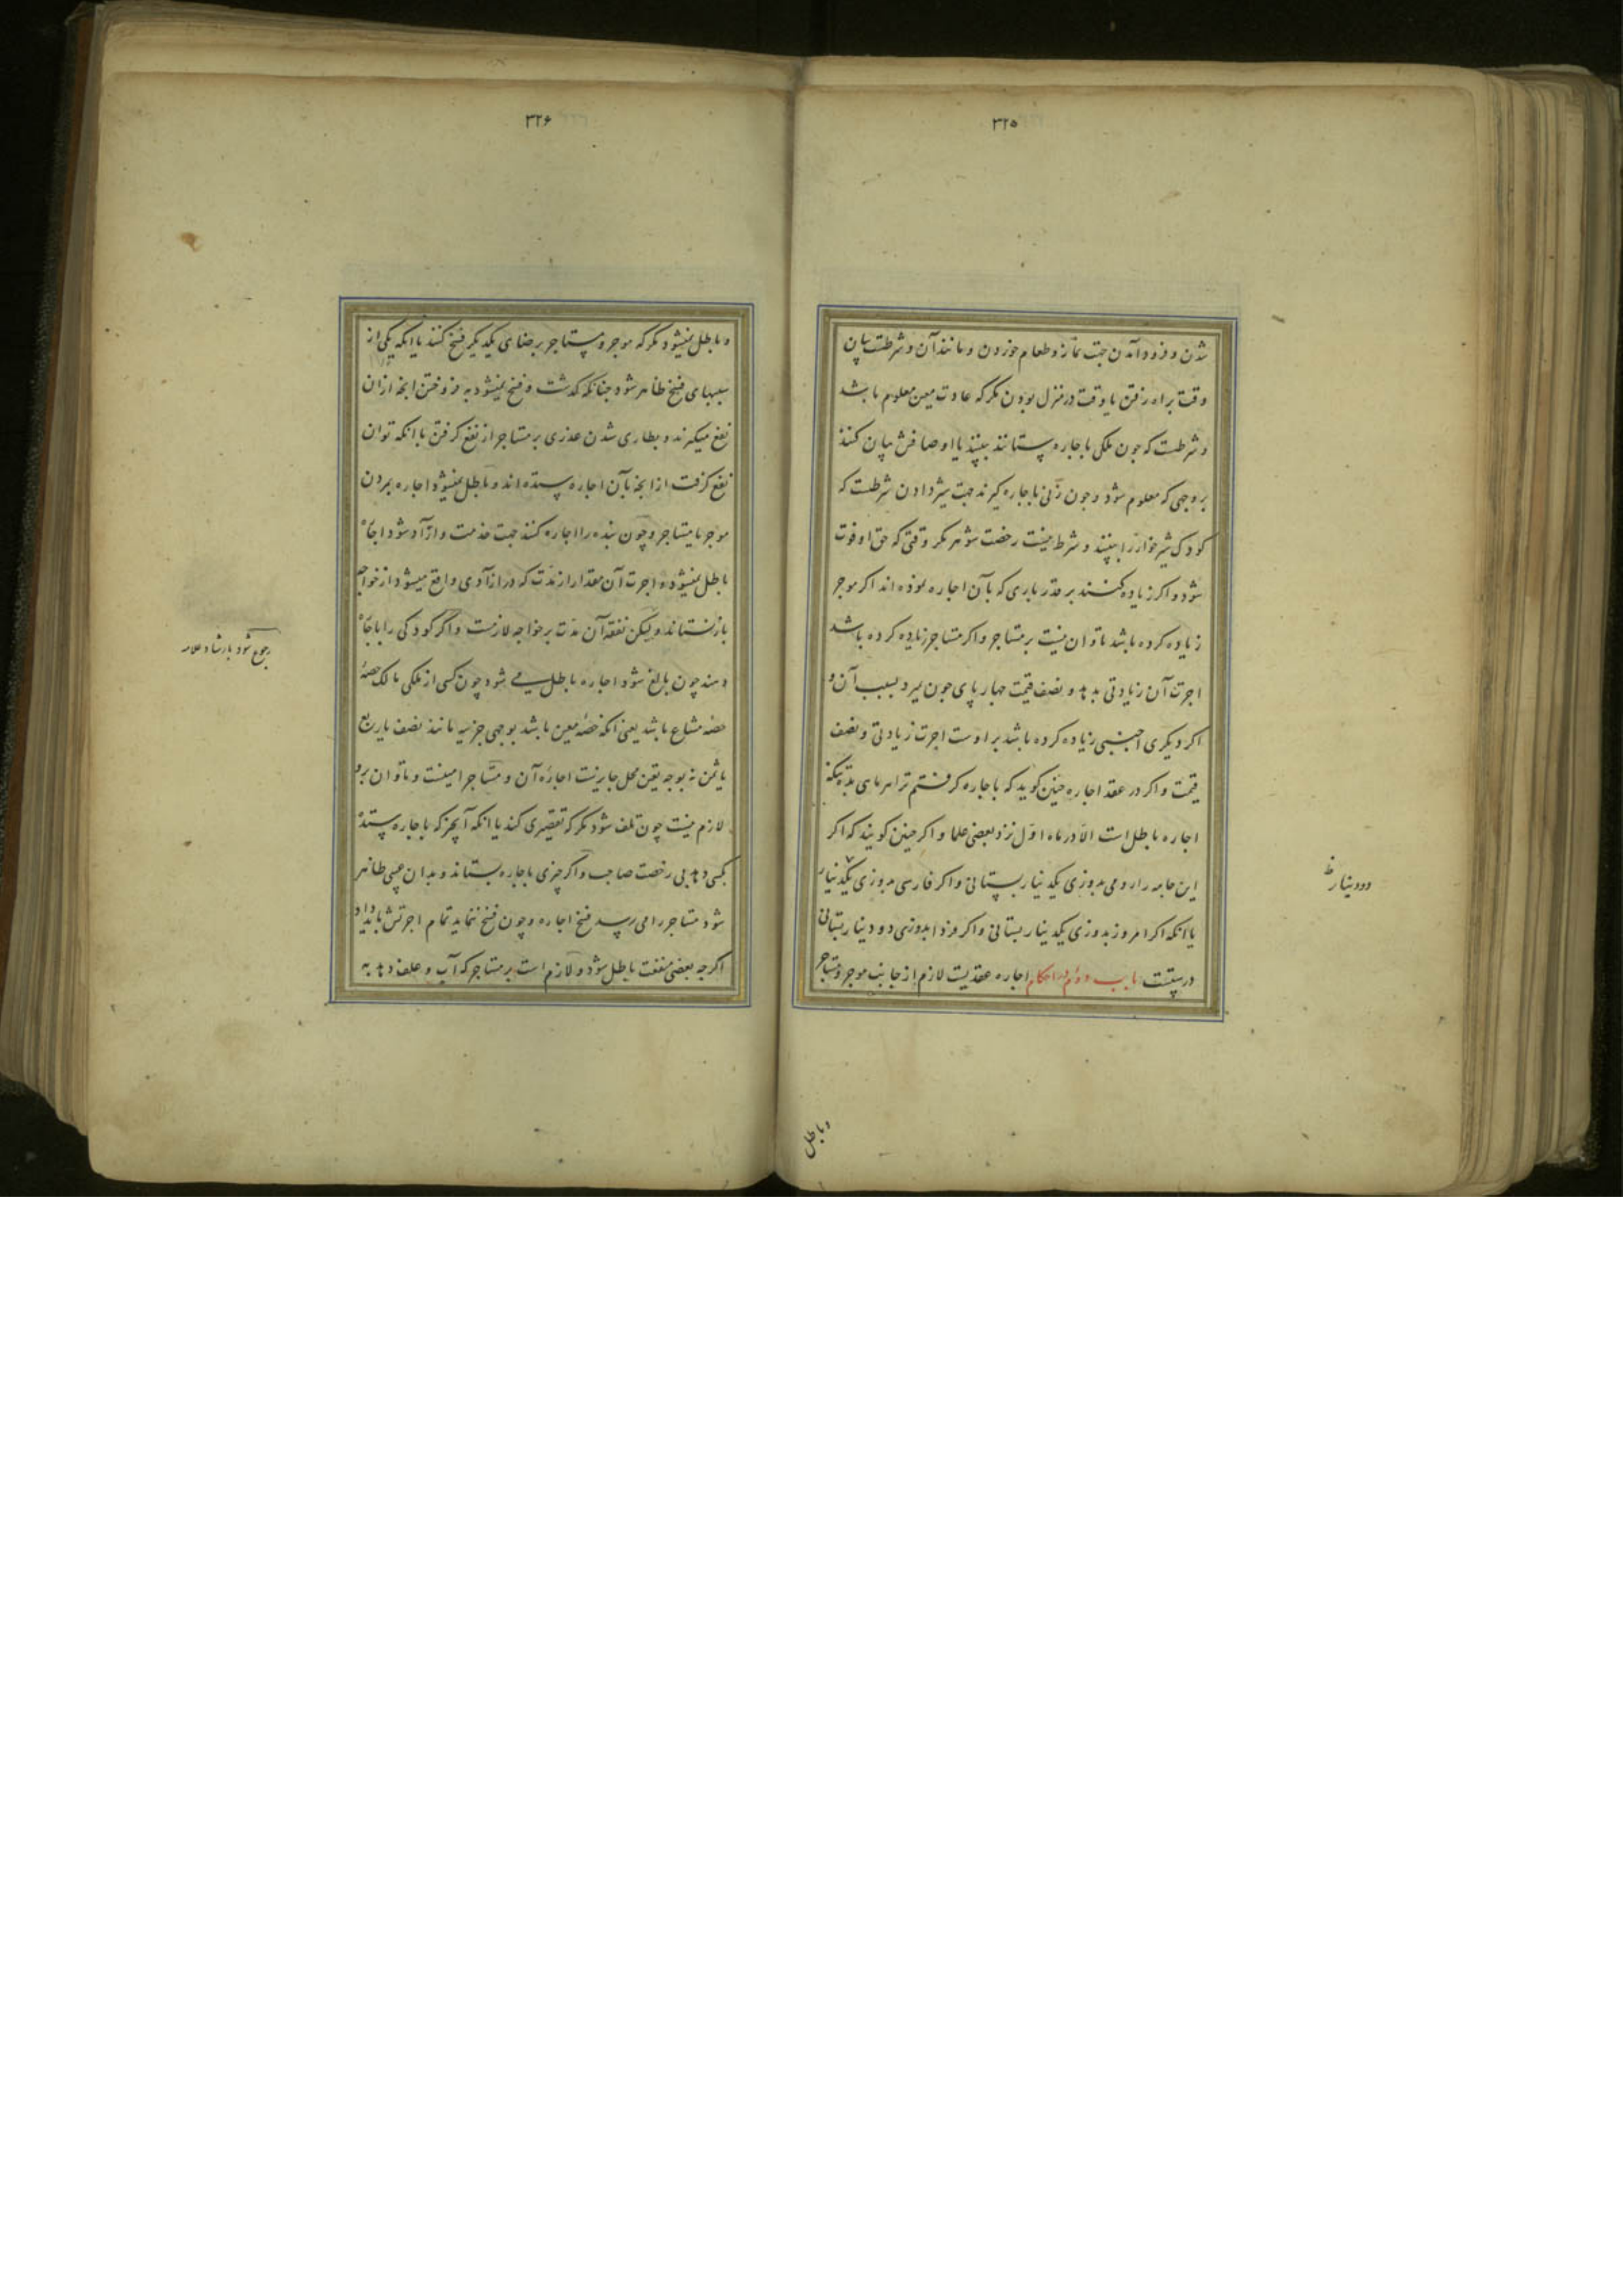 ۳۲۵
شدن و فرود آمدن جهت نماز و طعام خوردن و مانند آن و شرطست بیان
وقت براه رفتن یا وقت در منزل بودن مکر که عادت معین معلوم باشد
و شرطست که جون ملکی باجاره ستانند ببینند یا اوصافش بیان کنند
بر وجهی که معلوم شود و جون زنی باجاره کیرند جهت شیر دادن شرطست که
کودک شیر خواره را ببینند و شرط نیست رخصت شوهر مکر وقتی که حق او فوت
شود و اکر زیاده کنند بر قدر باری که بآن اجاره نموده اند اکر موجر
زیاده کرده باشد تاوان نیست بر مستاجر و اکر مستاجر زیاده کرده باشد
اجرت آن زیادتی بدهد و نصف قیمت جهار پای جون بمیرد بسبب آن و
اکر دیکری اجنبی زیاده کرده باشد بر اوست اجرت زیادتی و نصف
قیمت و اکر در عقد اجاره جنین کوید که باجاره کرفتم ترا هر ماهی
اجاره باطل است الا در ماه اول نزد بعضی علما و اکر جنین کویند که اکر
این جامه را رومی بدوزی یکدینار بستانی و اکر فارسی بدوزی یکدینار
یا انکه اکر امروز بدوزی یکدینار بستانی و اکر فردا بدوزی دو دینار بستانی
درستست باب دوم در احکام اجاره عقدیست لازم از جانب موجر و مستاجر
دو دینار ظ
و باطل
۳۲۶
و باطل نمیشود مکر که موجر و مستاجر برضای یکدیکر فسخ کنند یا انکه یکی از
سببهای فسخ ظاهر شود جنانکه کذشت و فسخ نمیشود به فروختن انجه ازان
نفع میکیرند و بطاری شدن عذری بر مستاجر از نفع کرفتن با انکه توان
نفع کرفت از انجه بآن اجاره ستده اند و باطل نمیشود اجاره بمردن
موجر یا مستاجر و چون بنده را اجاره کنند جهت خدمت و او آزاد شود اجاره
باطل نمیشود و اجرت آن مقدار از مدت که در آزادی واقع میشود از خواجه
باز نستاند و لیکن نفقه آن مدت بر خواجه لازمست و اکر کودکی را باجاره
دهند چون بالغ شود اجاره باطل می شود چون کسی از ملکی مالک حصهٔ
حصه مشاع باشد یعنی انکه حصه معین باشد بوجهی جزییه مانند نصف یا ربع
یا ثمن نه بوجه یقین محل جایزست اجارهٔ آن و مستاجر امینست و تاوان برو
لازم نیست چون تلف شود مکر که تقصیری کند یا انکه آنچیز که باجاره ستده
بکسی دهد بی رخصت صاحب و اکر چیزی باجاره بستاند و بدان عیبی ظاهر
شود مستاجر را می رسد فسخ اجاره و چون فسخ ننماید تمام اجرتش باید داد
اکرجه بعضی منفعت باطل شود و لازم است بر مستاجر که آب و علف دهد به
رجوع شود بارشاد علامه